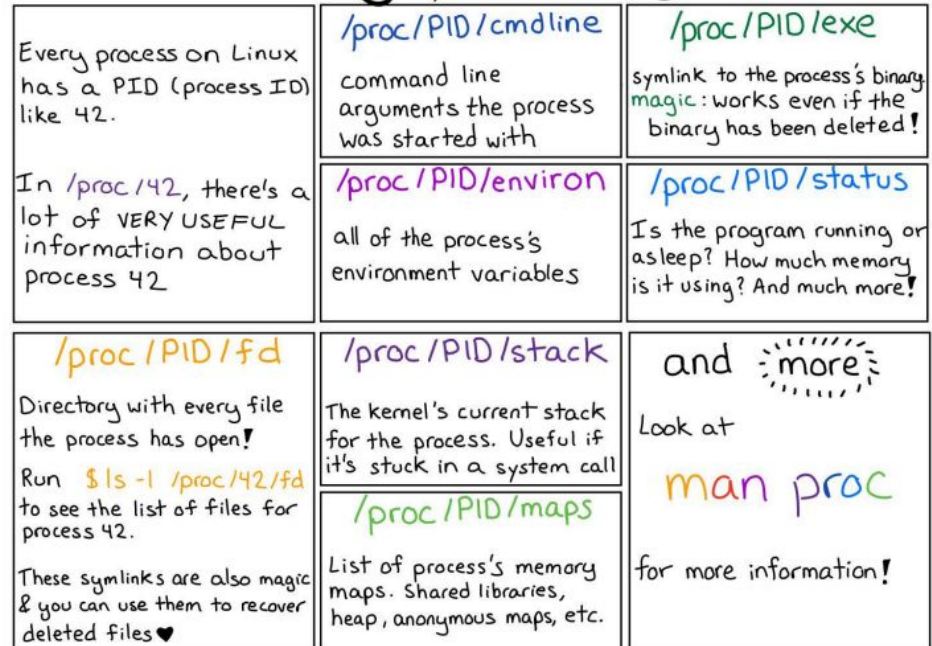 Every process on Linux
has a PID (process ID)
like 42.
In /proc/42, there's a
lot of VERY USEFUL
information about
process 42
/proc/PID/cmdline
command line
arguments the process
was started with
/proc/PID/exe
symlink to the process's binary
magic: works even if the
binary has been deleted!
/proc/PID/environ
all of the process's
environment variables
/proc/PID/status
Is the program running or
asleep? How much memory
is it using? And much more!
/proc/PID/fd
Directory with every file
the process has open!
Run $ ls -l /proc/42/fd
to see the list of files for
process 42.
These symlinks are also magic
& you can use them to recover
deleted files ♥
/proc/PID/stack
The kernel's current stack
for the process. Useful if
it's stuck in a system call
/proc/PID/maps
List of process's memory
maps. Shared libraries,
heap, anonymous maps, etc.
and more
Look at
man proc
for more information!